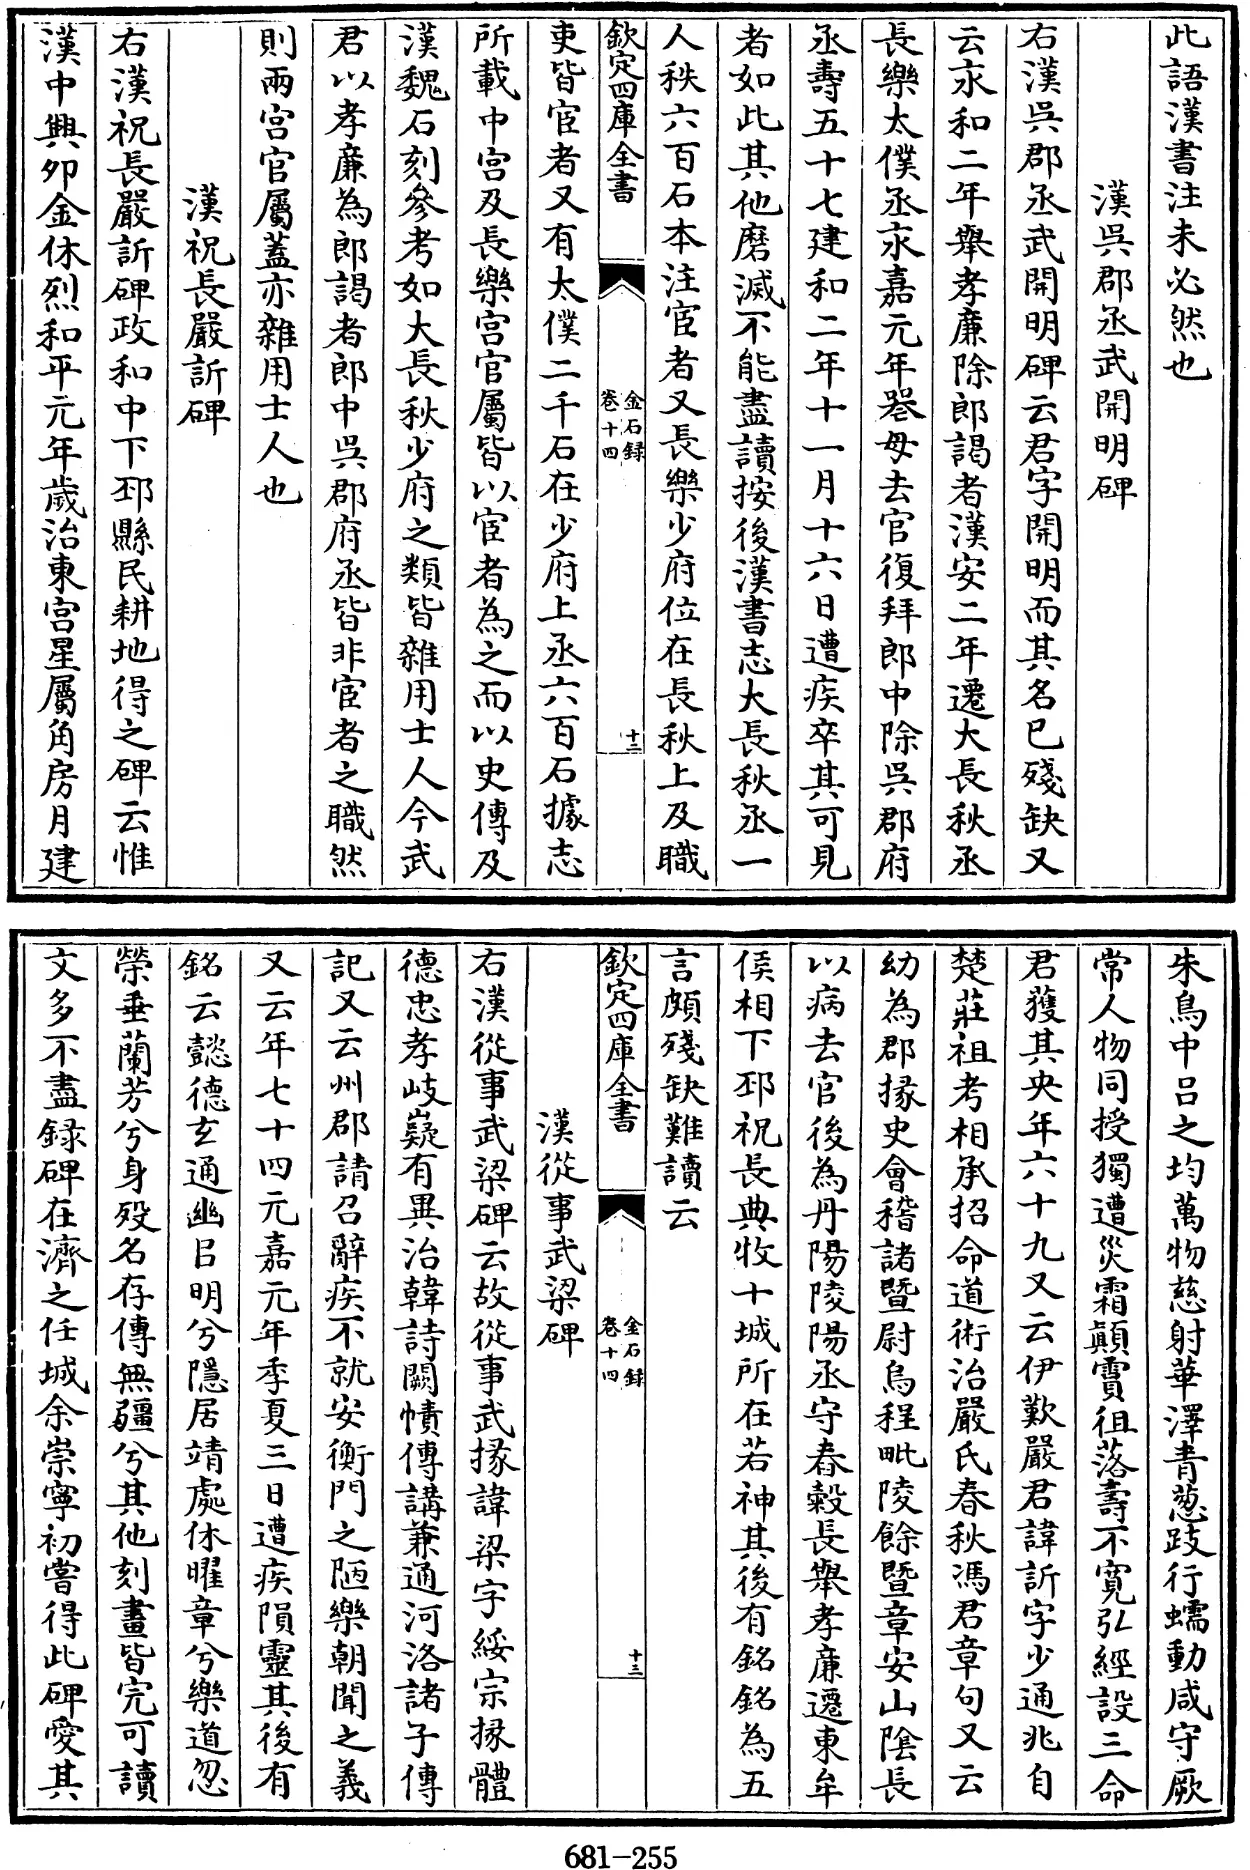 此語漢書注未必然也
漢吳郡丞武開明碑
右漢吳郡丞武開明碑云君字開明而其名已殘缺又
云永和二年舉孝廉除郎謁者漢安二年遷大長秋丞
長樂太僕丞永嘉元年喪母去官復拜郎中除吳郡府
丞壽五十七建和二年十一月十六日遭疾卒其可見
者如此其他磨滅不能盡讀按後漢書志大長秋丞一
人秩六百石本注宦者又長樂少府位在長秋上及職
欽定四庫全書
金石録
卷十四
十二
吏皆宦者又有太僕二千石在少府上丞六百石據志
所載中宮及長樂宮官屬皆以宦者為之而以史傳及
漢魏石刻參考如大長秋少府之類皆雜用士人今武
君以孝廉為郎謁者郎中吳郡府丞皆非宦者之職然
則兩宮官屬蓋亦雜用士人也
漢祝長嚴訢碑
右漢祝長嚴訢碑政和中下邳縣民耕地得之碑云惟
漢中興卯金休烈和平元年歲治東宮星屬角房月建
朱鳥中呂之均萬物慈射華澤青葱跂行蠕動咸守厥
常人物同授獨遭災霜顛霣徂落壽不寬弘經設三命
君獲其央年六十九又云伊歎嚴君諱訢字少通兆自
楚莊祖考相承招命道術治嚴氏春秋馮君章句又云
幼為郡掾史會稽諸暨尉烏程毗陵餘暨章安山陰長
以病去官後為丹陽陵陽丞守春穀長舉孝廉遷東牟
侯相下邳祝長典牧十城所在若神其後有銘銘為五
言頗殘缺難讀云
欽定四庫全書
金石録
卷十四
十三
漢從事武梁碑
右漢從事武梁碑云故從事武掾諱梁字綏宗掾體
德忠孝岐嶷有異治韓詩闕幘傳講兼通河洛諸子傳
記又云州郡請召辭疾不就安衡門之陋樂朝聞之義
又云年七十四元嘉元年季夏三日遭疾隕靈其後有
銘云懿德玄通幽㠯明兮隱居靖處休曜章兮樂道忽
榮垂蘭芳兮身歿名存傳無疆兮其他刻畫皆完可讀
文多不盡録碑在濟之任城余崇寧初嘗得此碑愛其
681-255